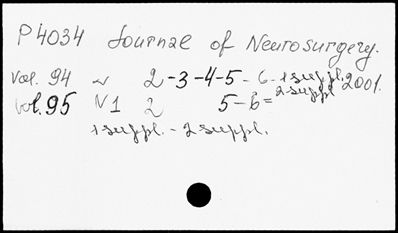 P4034 Journal of Neurosurgery.
Vol. 94 N 2-3-4-5-6-1suppl. 2001.
2suppl
Vol. 95 N1 2 5-6=
1suppl.-2suppl.